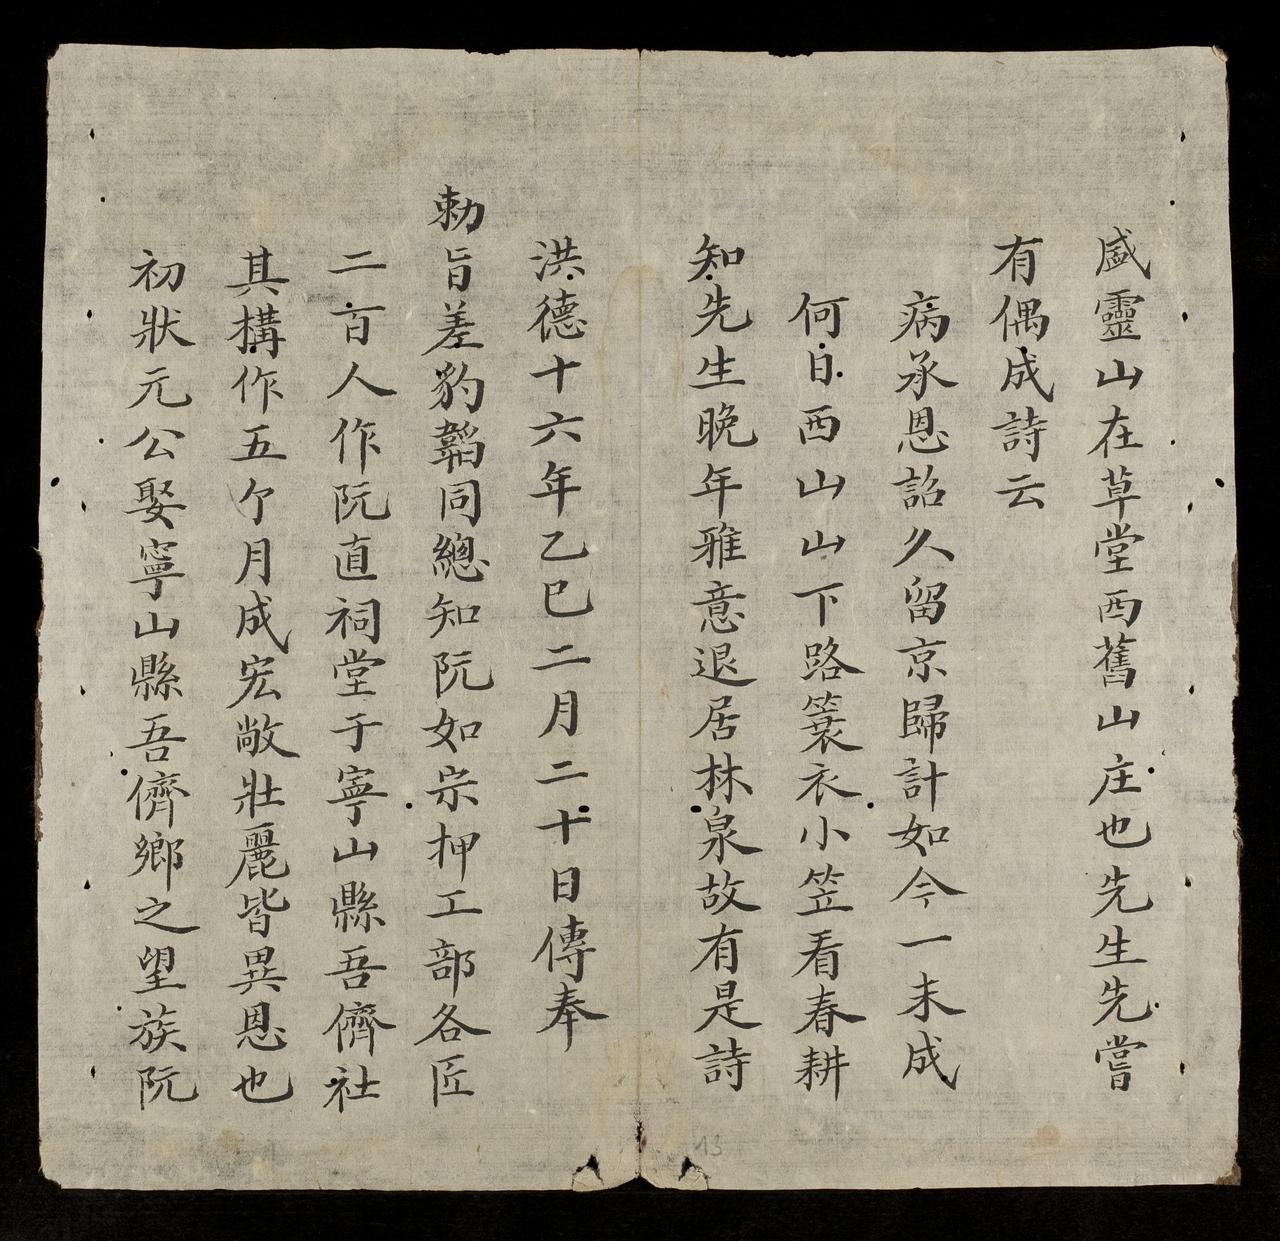 盛靈山在草堂西舊山庄也先生先嘗
有偶成詩云
病承恩詔久留京歸計如今一未成
何日西山山下路簑衣小笠看春耕
知先生晩年雅意退居林泉故有是詩
洪德十六年乙巳二月二十日傳奉
勅旨差豹韜同總知阮如宗押工部各匠
二百人作阮直祠堂于寧山縣吾儕社
其構作五个月成宏敞壯麗皆異恩也
初狀元公娶寧山縣吾儕鄉之望族阮
13